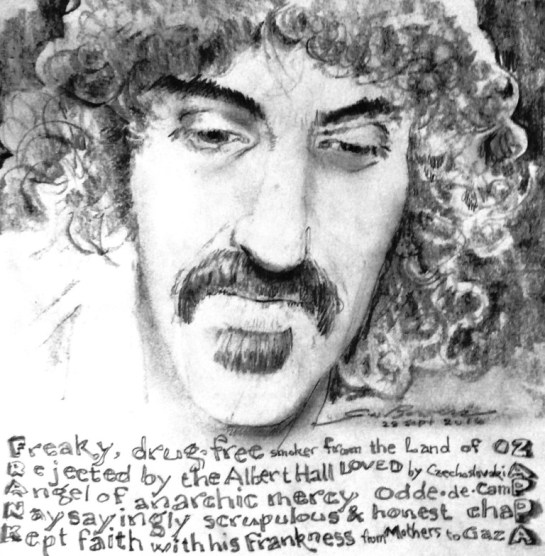 22 Sept 2016
Freaky, drug-free smoker from the Land of OZ
Rejected by the Albert Hall LOVED by CzechoslovakiA
Angel of anarchic mercy odde-de-CamP
Naysayingly scrupulous & honest chaP
Kept faith with his Frankness from Mothers to GazA